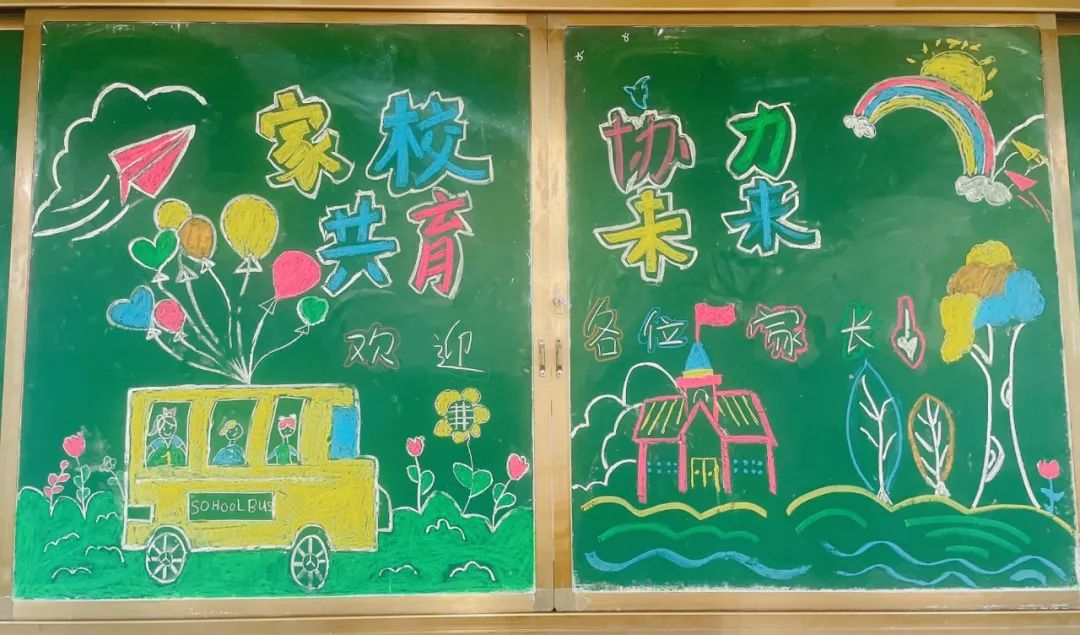 家校
共育
欢迎
SCHOOL BUS
协力
未来
各位家长！